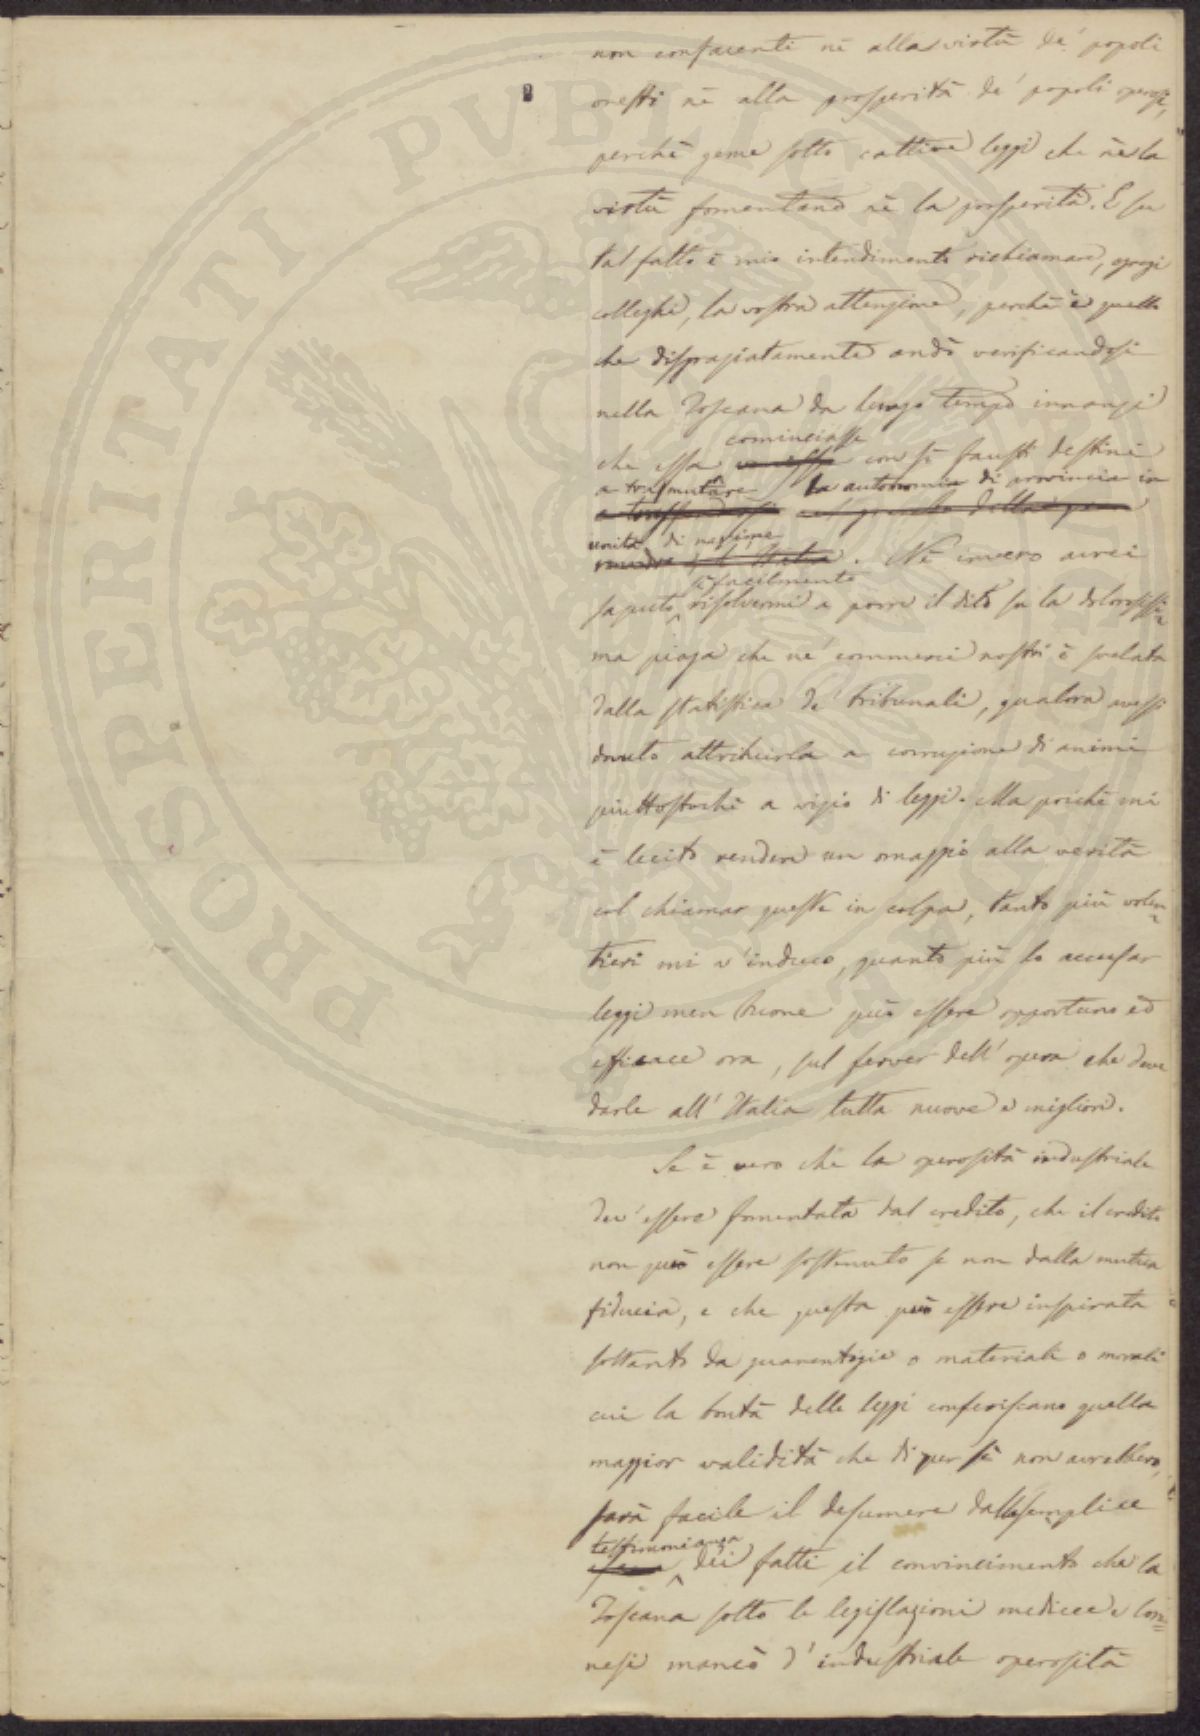 non confacenti nè alla virtù de' popoli
onesti nè alla prosperità de' popoli operosi,
perchè geme sotto cattive leggi che nè la
virtù fomentano nè la prosperità. E su
tal fatto è mio intendimento richiamare, egregi
colleghi, la vostra attenzione, perchè è quello
che disgraziatamente andò verificandosi
nella Toscana da lungo tempo innanzi
cominciasse
che essa con sì fausti destini
a trasmutare la autonomia di provincia in
unità di nazione
. Nè invero avrei
sì facilmente
saputo risolvermi a porre il dito su la dolorosissi=
ma piaga che ne' commerci nostri è svelata
dalla statistica de' tribunali, qualora avessi
dovuto attribuirla a corruzione di animi
piuttostochè a vizio di leggi. Ma poichè mi
è lecito rendere un omaggio alla verità
col chiamar queste in colpa, tanto più volen=
tieri mi v'induco, quanto più lo accusar
leggi men buone può essere opportuno ed
efficace ora, sul fervor dell'opera che deve
darle all'Italia tutta nuove e migliori.
Se è vero che la operosità industriale
dev'essere fomentata dal credito, che il credito
non può essere sostenuto se non dalla mutua
fiducia, e che questa può essere inspirata
soltanto da guarentigie o materiali o morali
cui la bontà delle leggi conferiscano quella
maggior validità che di per sè non avrebbero,
sarà facile il desumere dalla semplice
testimonianza
dei fatti il convincimento che la
Toscana sotto le legislazioni medicee e lore=
nesi mancò d'industriale operosità
PROSPERITATI PVBLICAE